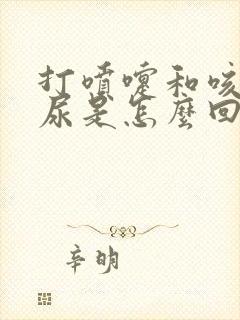 打噴嚏和咳
尿是怎麼回
辛明